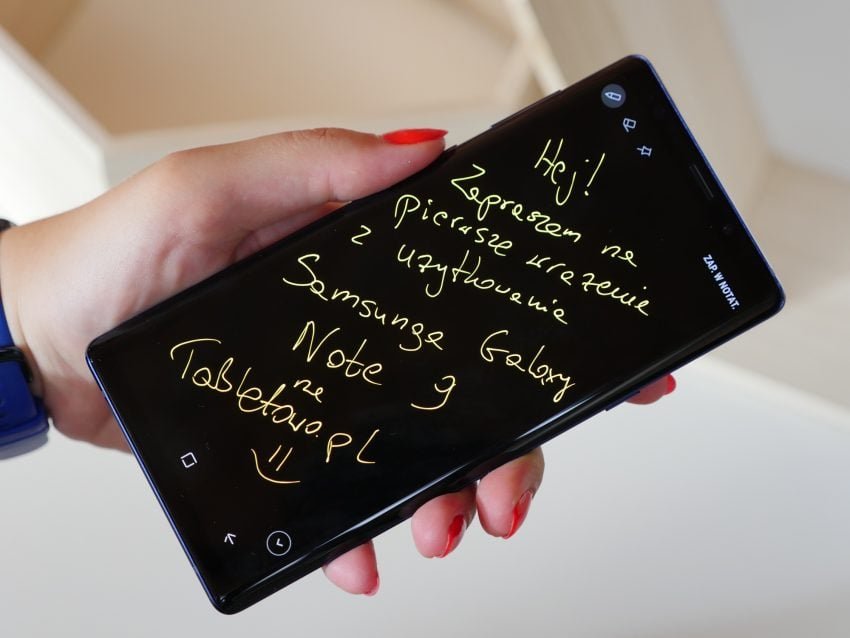 ZAP. W NOTAT.
Hej!
Zapraszam na
pierwsze wrażenia
z użytkowania
Samsunga Galaxy
Note 9
na
Tabletowo.pl
=)